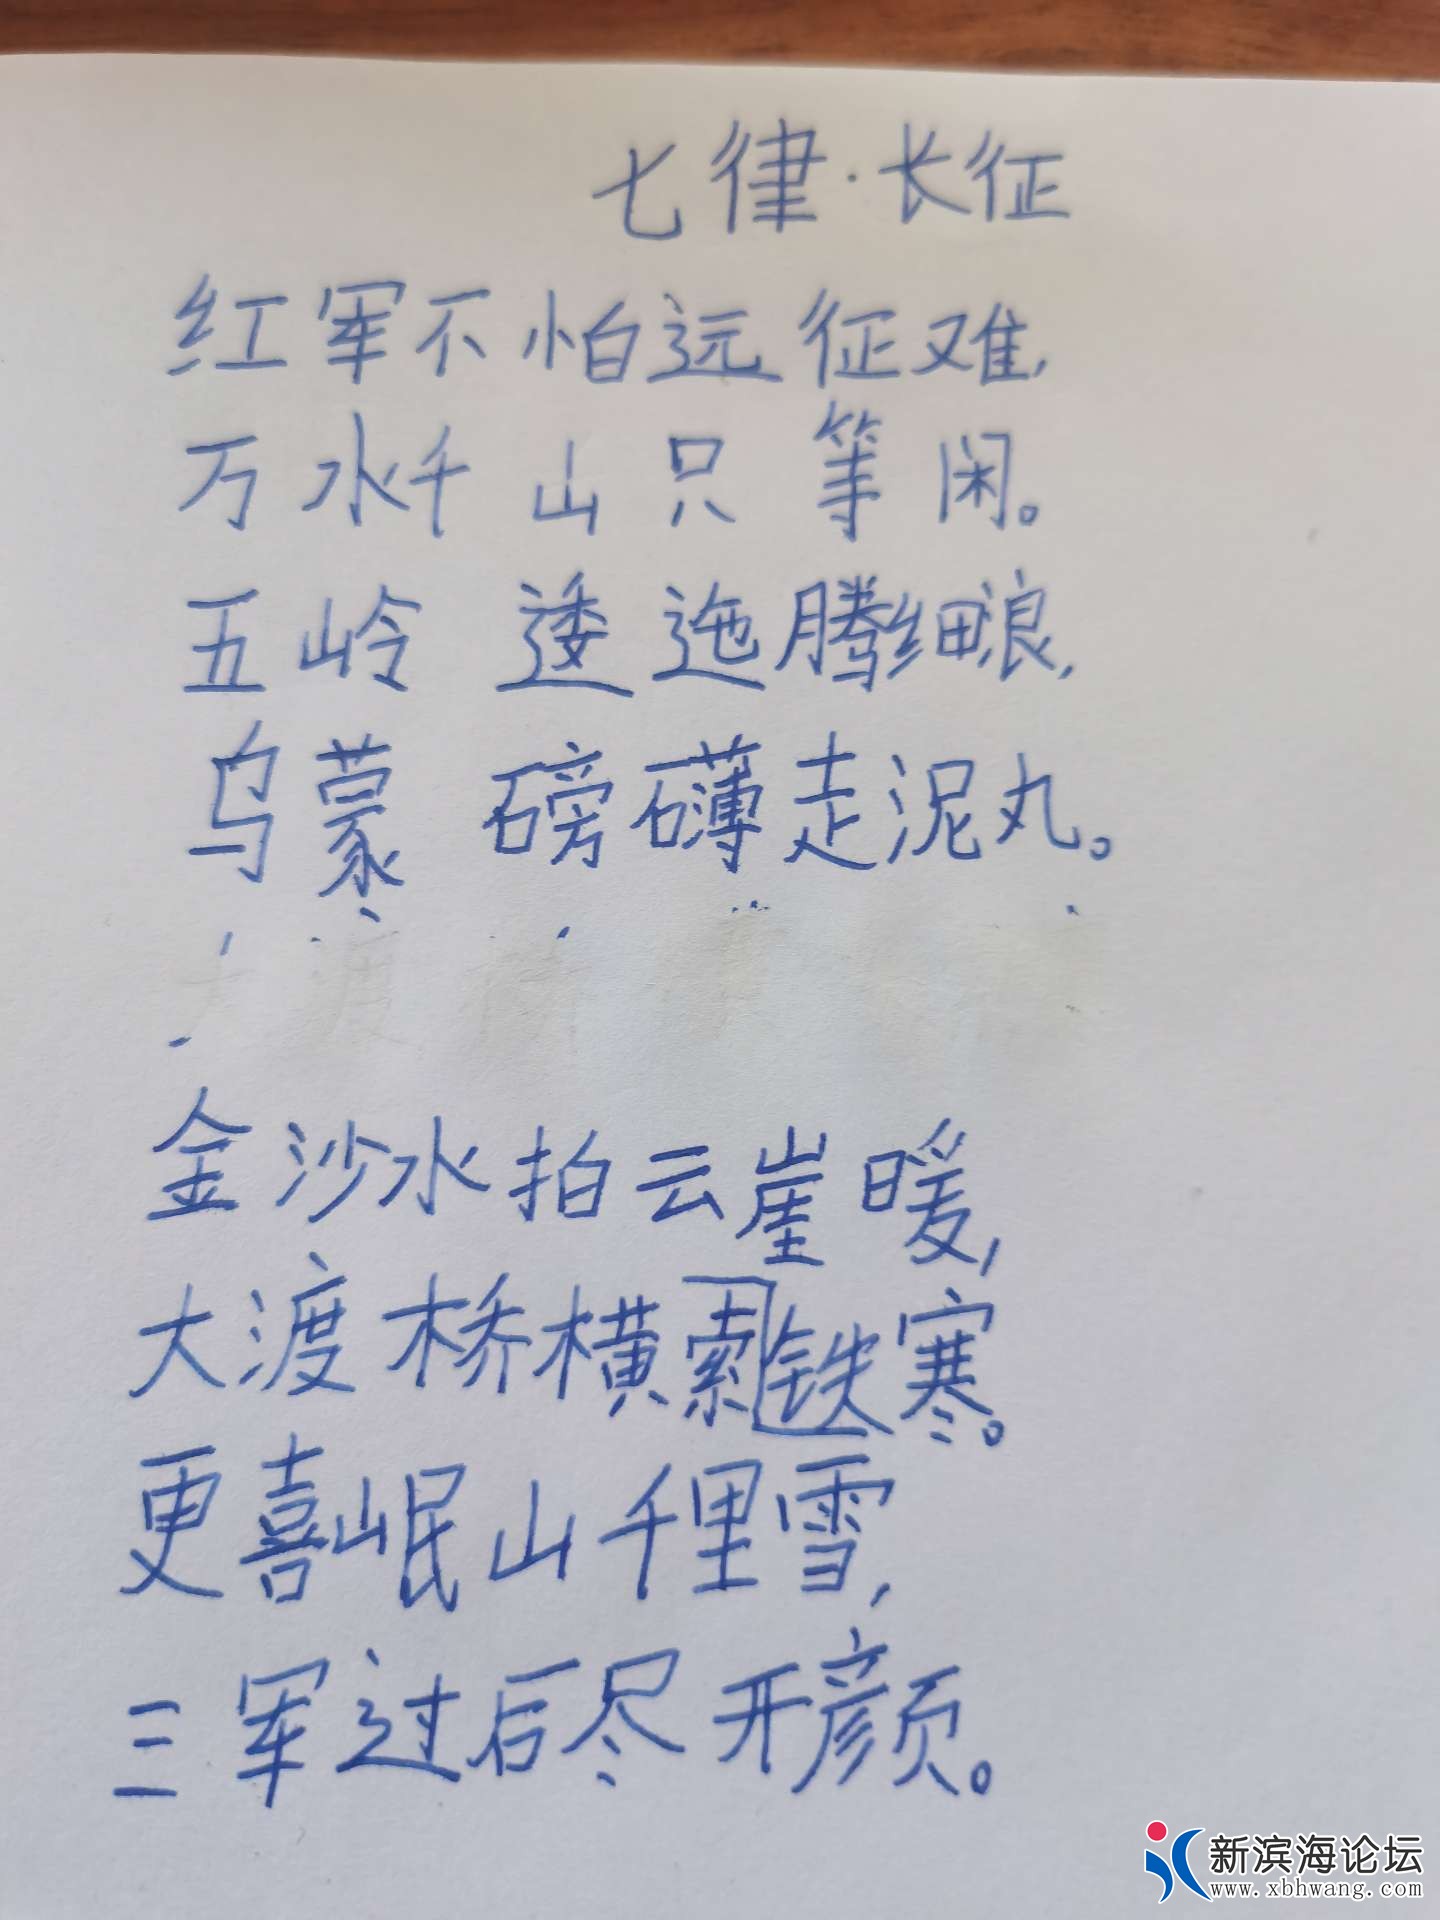 七律·长征
红军不怕远征难,
万水千山只等闲。
五岭逶迤腾细浪,
乌蒙磅礴走泥丸。
金沙水拍云崖暖,
大渡桥横索铁寒。
更喜岷山千里雪,
三军过后尽开颜。
新滨海论坛
www.xbhwang.com